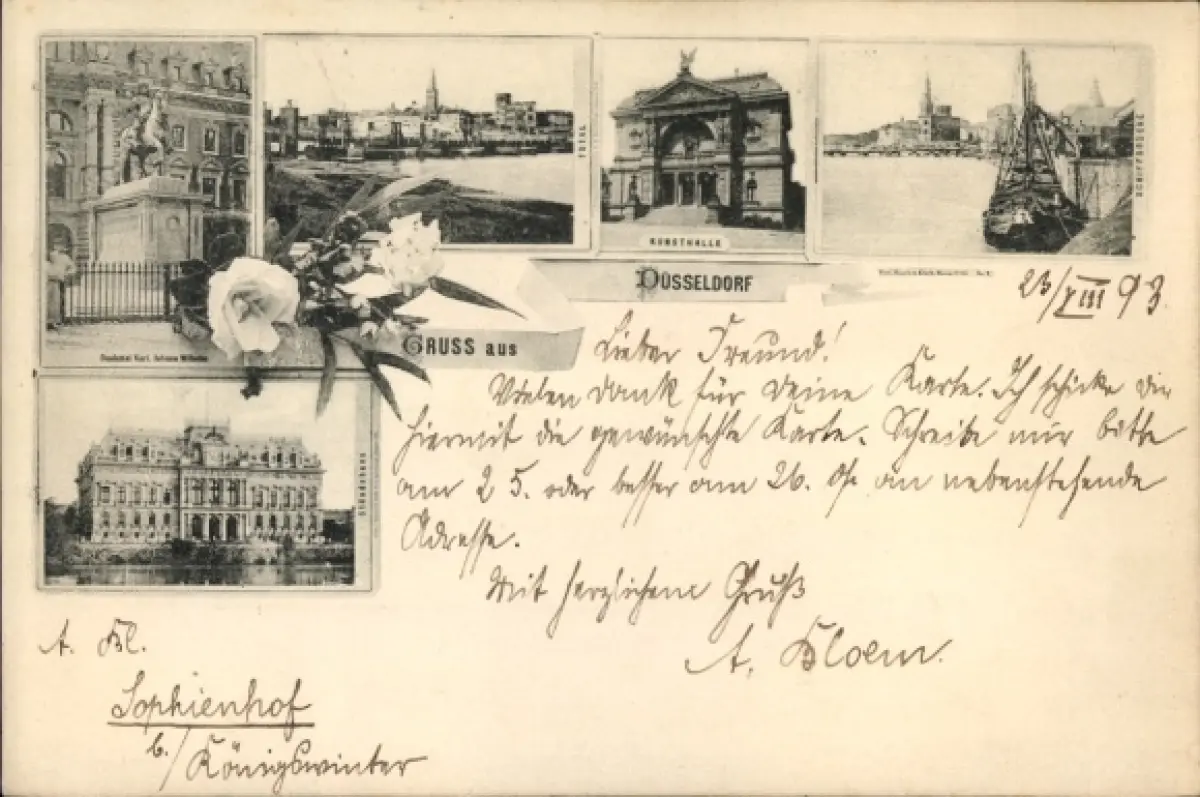 TOTAL
KUNSTHALLE
SCHIFFBRÜCKE
DÜSSELDORF
23/VIII 93.
Denkmal Kurf. Johann Wilhelm
GRUSS aus
Lieber Freund!
Vielen Dank für deine Karte. Ich schicke dir
hiermit die gewünschte Karte. Schreibe mir bitte
am 25. oder besser am 26. an nebenstehende
Adresse.
STÄNDEHAUS
Mit herzlichem Gruß
A. Bloem.
A. Bl.
Sophienhof
b./Königswinter